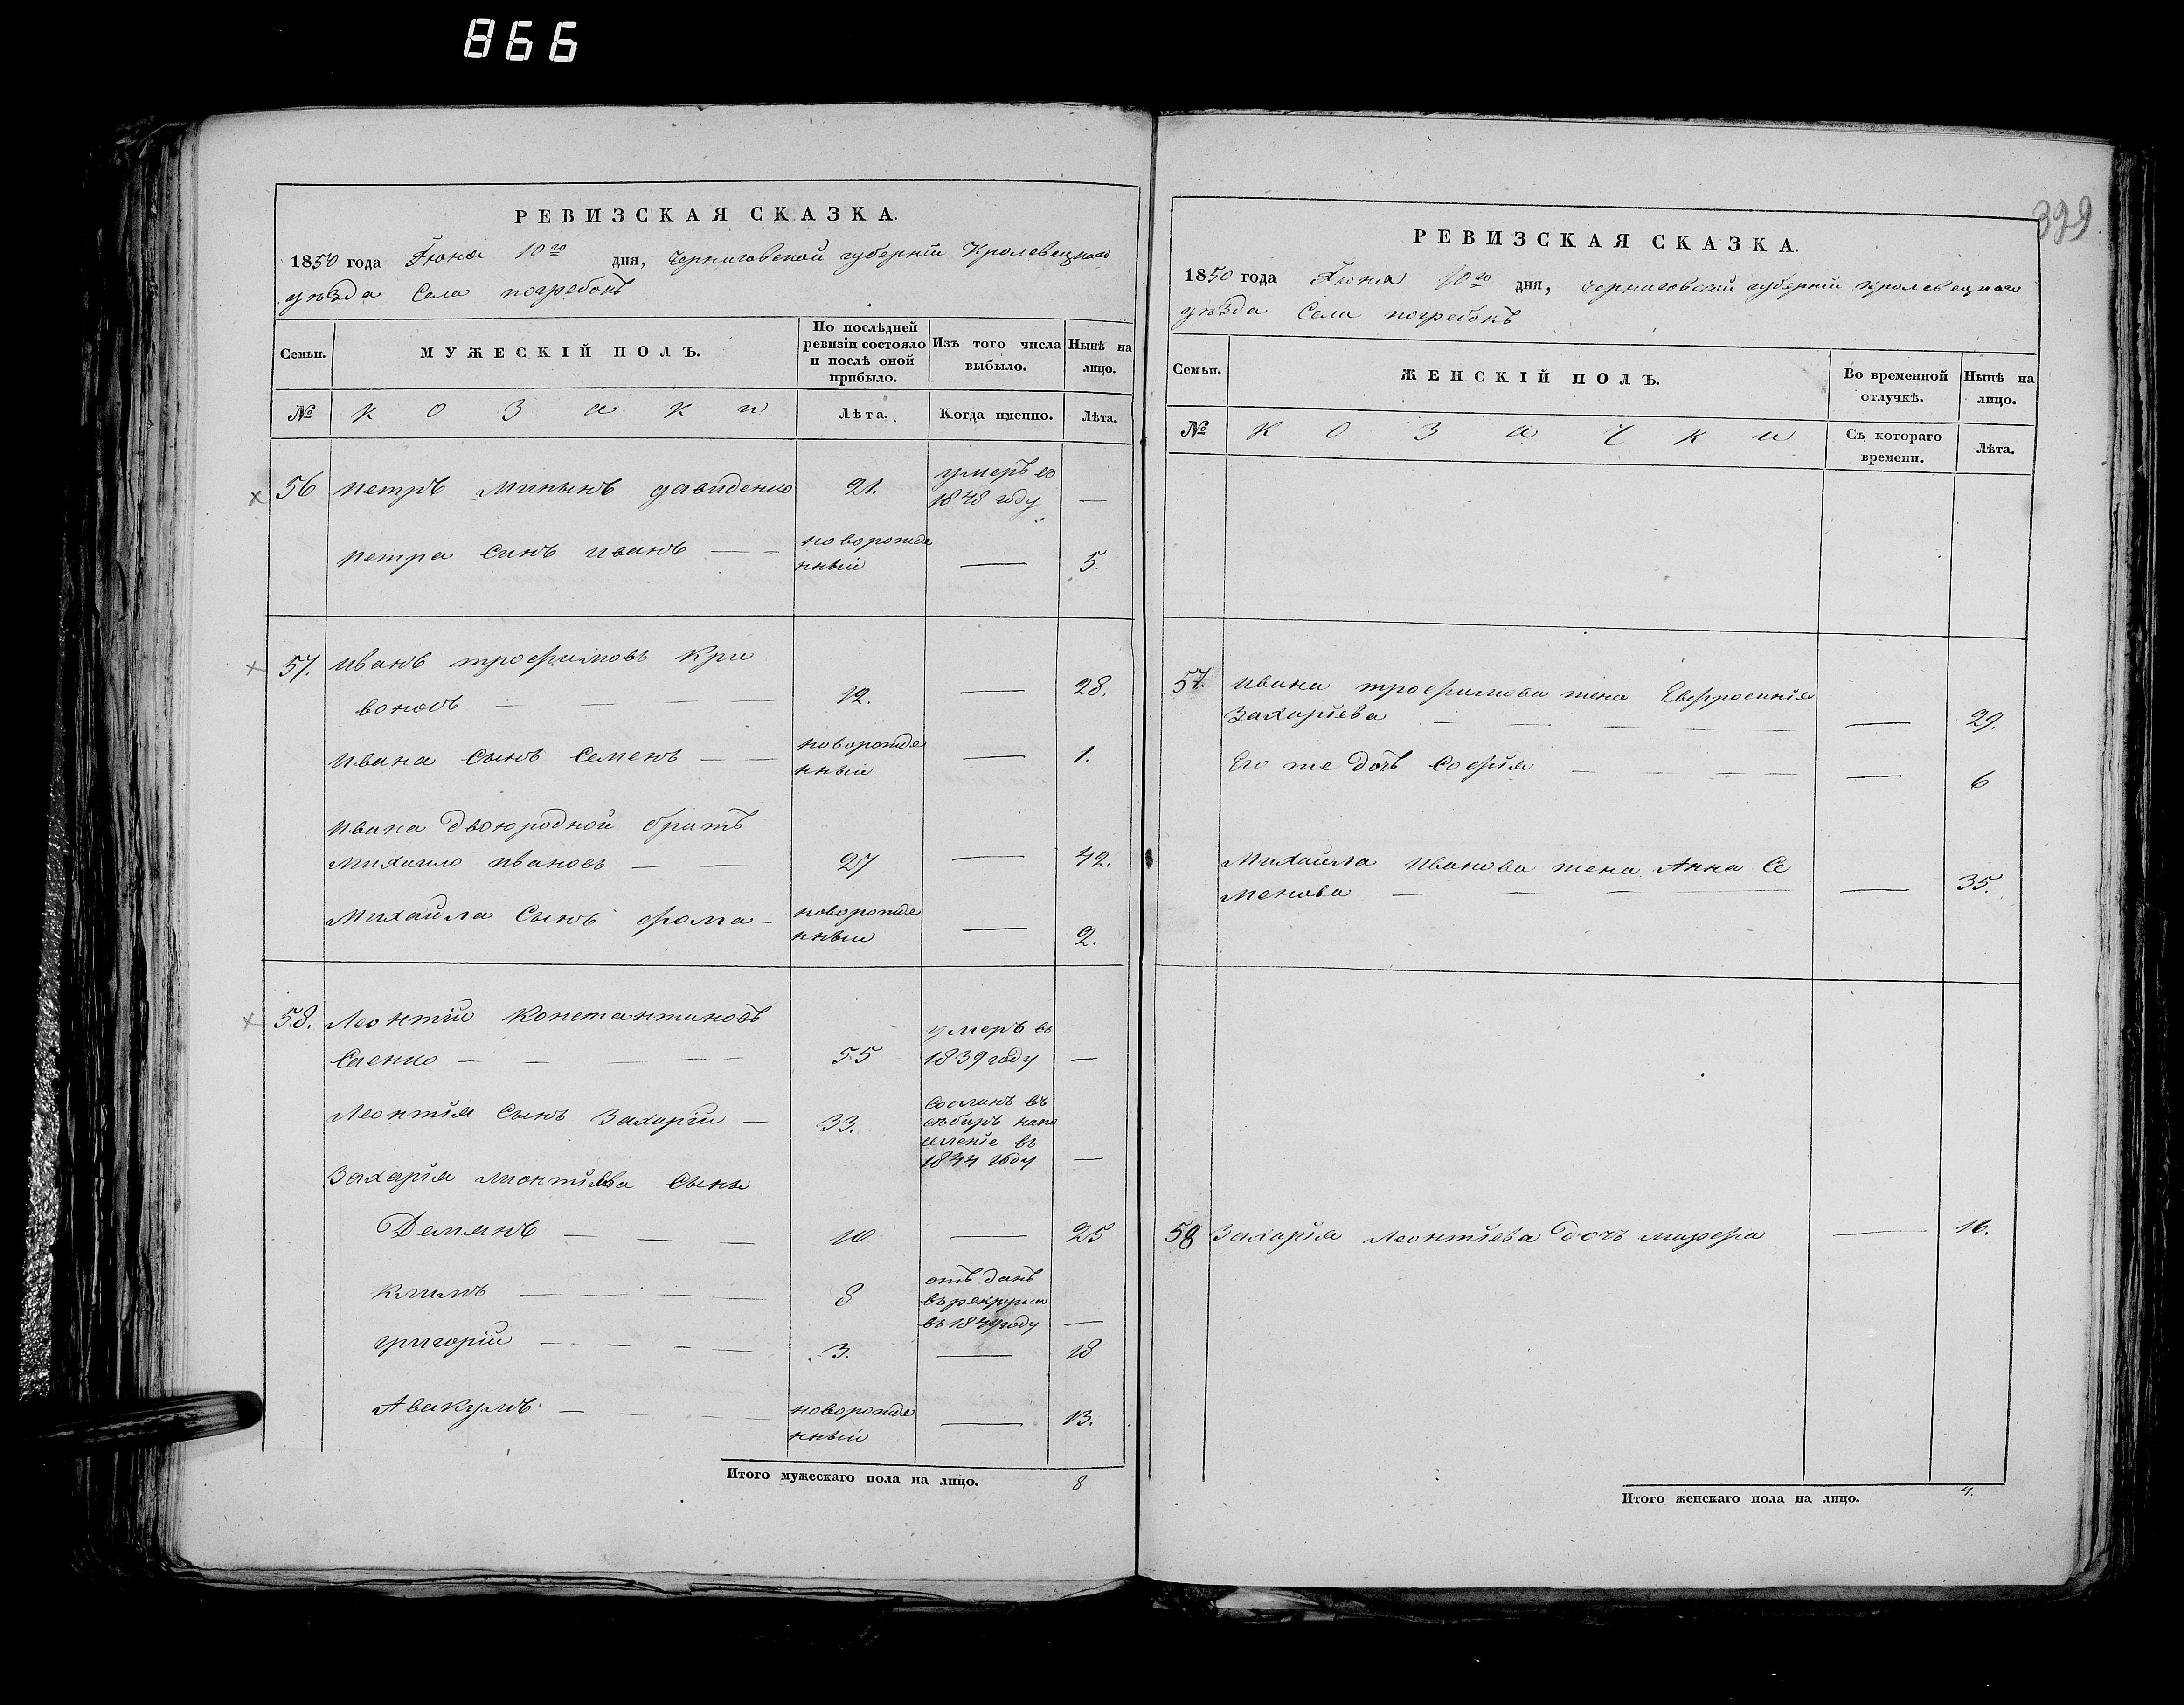 866
РЕВИЗСКАЯ СКАЗКА.
1850 года Іюня 10го дня, Черниговской губерніи Кролевецкаго
уѣзда Села погребокъ
Семьи. МУЖЕСКІЙ ПОЛЪ. По послѣдней ревизіи состояло и послѣ оной прибыло. Изъ того числа выбыло. Нынѣ на лицо.
№ козаки Лѣта. Когда именно. Лѣта.
56 петръ Мининъ давиденко 21. умеръ въ 1848 году —
петра Синъ иванъ — — новорожденный — 5.
57. иванъ трофимовъ Кри
воносъ — — — — 12. — 28.
ивана Сынъ Семенъ — — новорожденный — 1.
ивана двоюродной братъ
михаило ивановъ — — 27 — 42.
михаила Сынъ фома — новорожденный — 2.
58. Леонтій Константиновъ
Саенко — — — — — 55 умеръ въ 1839 году —
Леонтія Сынъ Захарій — 33. Сосланъ въ сибиръ на поселеніе въ 1844 году —
Захарія Леонтіева Сыны
Демянъ — — — 10 — 25
климъ — — — — 8 отъ данъ въ рекруты въ 1849 году —
григорій — — — — 3. — 18
Авакумъ — — — — новорожденный — 13.
Итого мужескаго пола на лицо. 8
399
РЕВИЗСКАЯ СКАЗКА.
1850 года Іюня 10го дня, Черниговской губерніи кролевецкаго
уѣзда Села погребокъ
Семьи. ЖЕНСКІЙ ПОЛЪ. Во временной отлучкѣ. Нынѣ на лицо.
№ козачки Съ котораго времени. Лѣта.
57. ивана трофимова жена Евфросинія
Захаріева — — — — — 29.
Его же дочъ Софія — — — — — 6
Михаила иванова жена Анна Се
менова — — — — — 35.
58 Захарія Леонтіева дочъ марфа — 16.
Итого женскаго пола на лицо. 4.